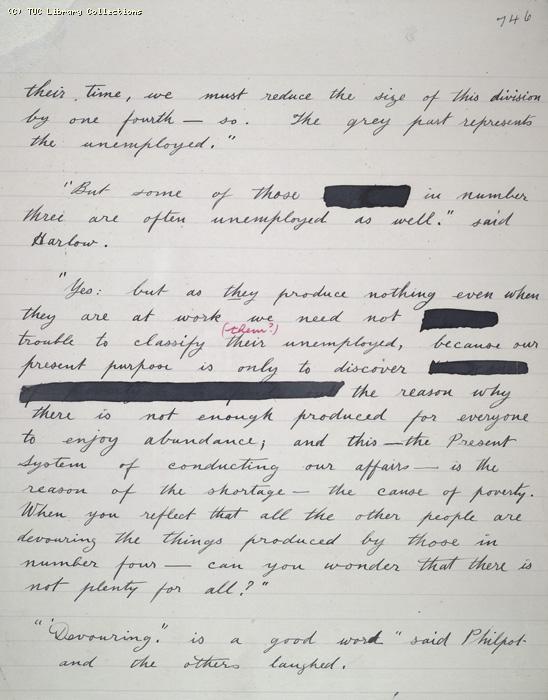 (C) TUC Library Collections
746
their time, we must reduce the size of this division
by one fourth — so. The grey part represents
the unemployed."
"But some of those in number
three are often unemployed as well." said
Harlow.
"Yes: but as they produce nothing even when
they are at work we need not
(them?)
trouble to classify their unemployed, because our
present purpose is only to discover
the reason why
there is not enough produced for everyone
to enjoy abundance; and this — the Present
System of conducting our affairs — is the
reason of the shortage — the cause of poverty.
When you reflect that all the other people are
devouring the things produced by those in
number four — can you wonder that there is
not plenty for all?"
"'Devouring.' is a good word" said Philpot
and the others laughed.